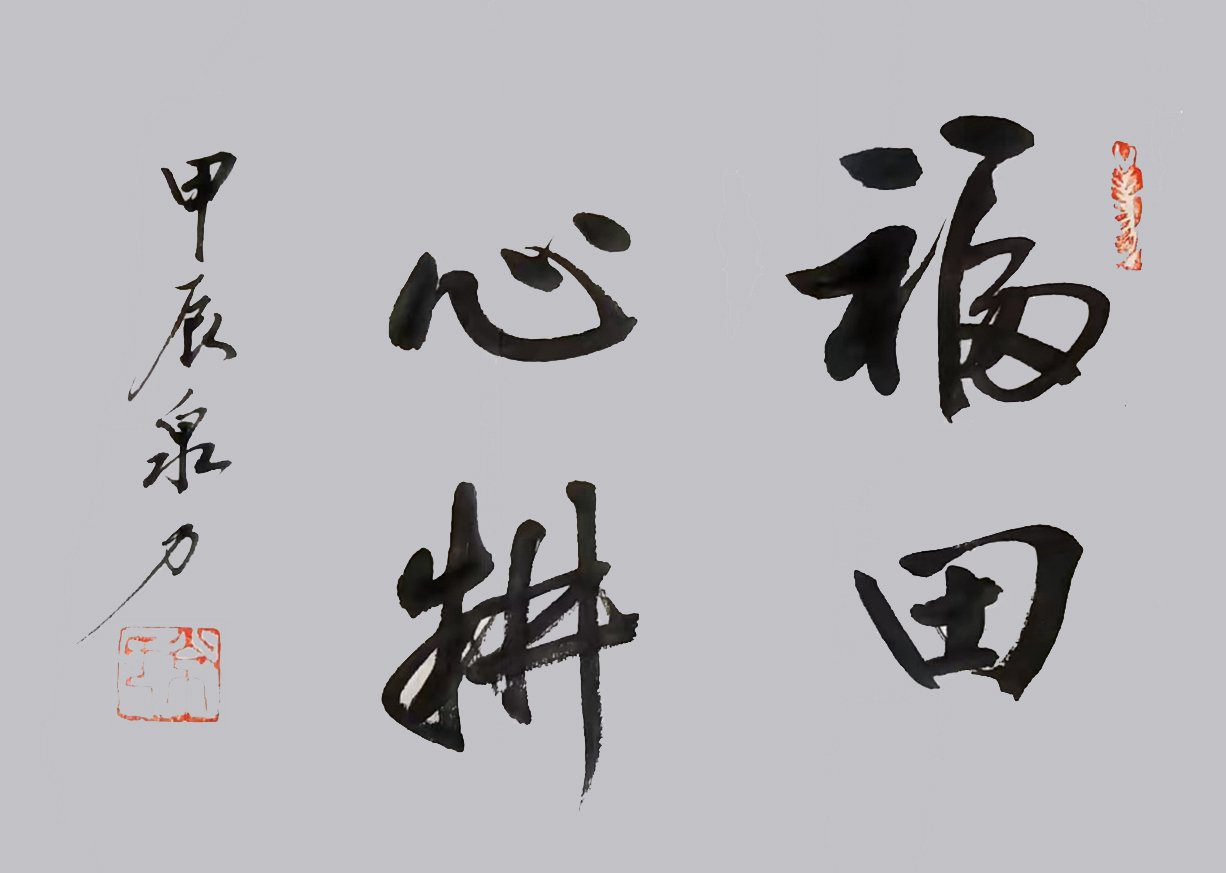 福田
心耕
甲辰泉力